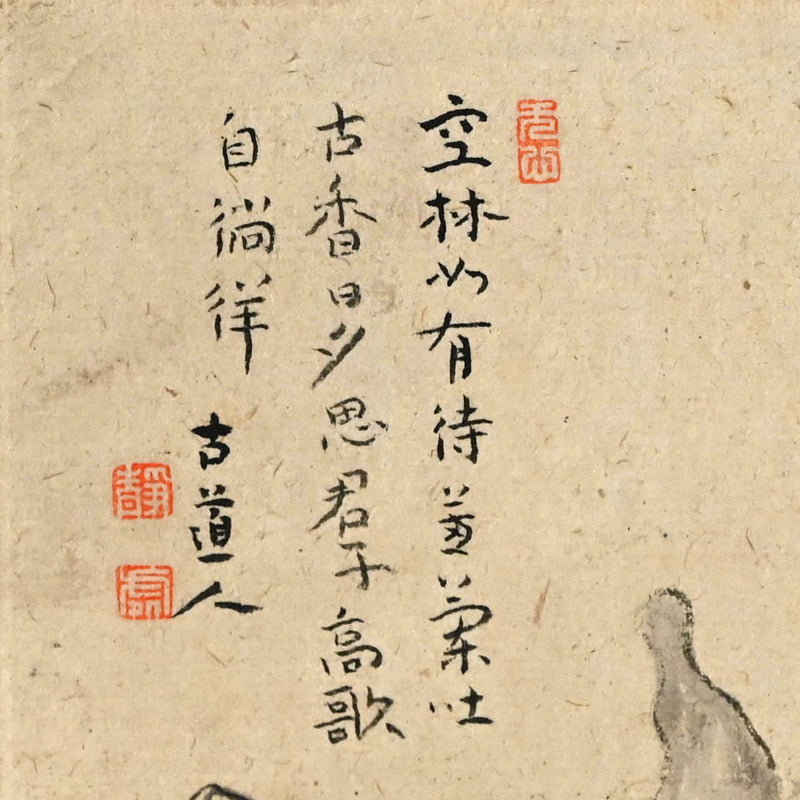 空林如有待蕙蘭吐
古香日夕思君子高歌
自徜徉
古道人
靜